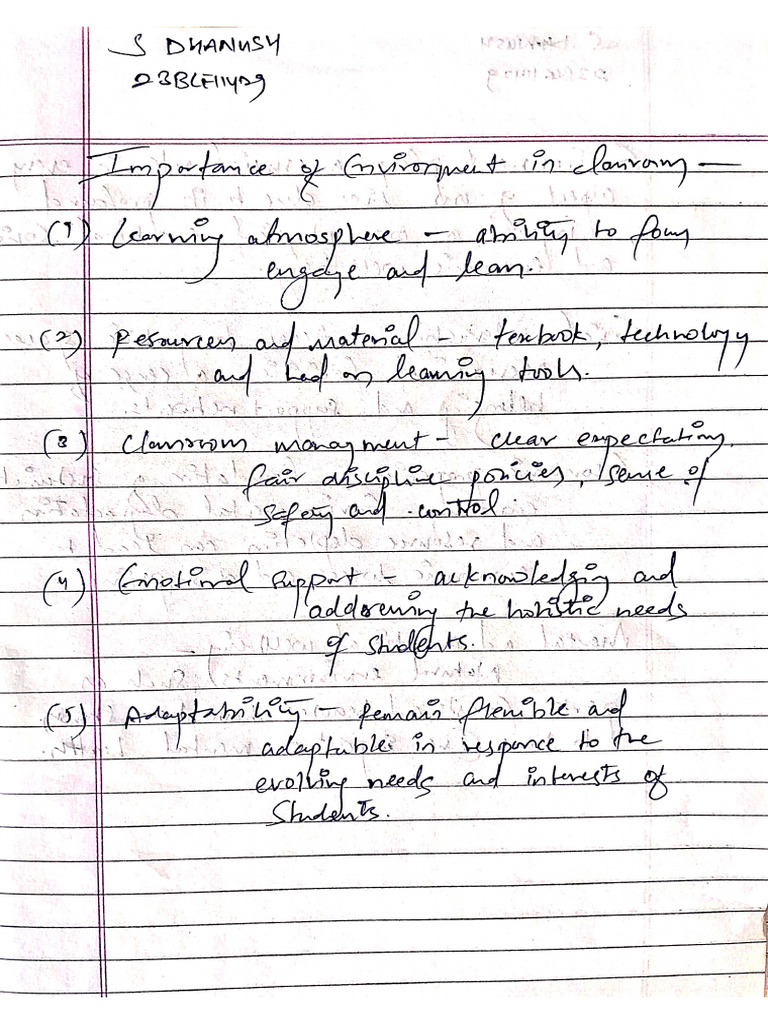 S DHANUSH
23BLE11429
Importance of Environment in classroom —
(1) Learning atmosphere - ability to focus
engage and learn.
(2) Resources and material - texbook, technology
and had on learning tools.
(3) Classroom managment - clear expectations,
fair discipline policies, sense of
safety and control.
(4) Emotional support - acknowledging and
addressing the holistic needs
of students.
(5) Adaptability - remain flexible and
adaptable in responce to the
evolving needs and interests of
Students.